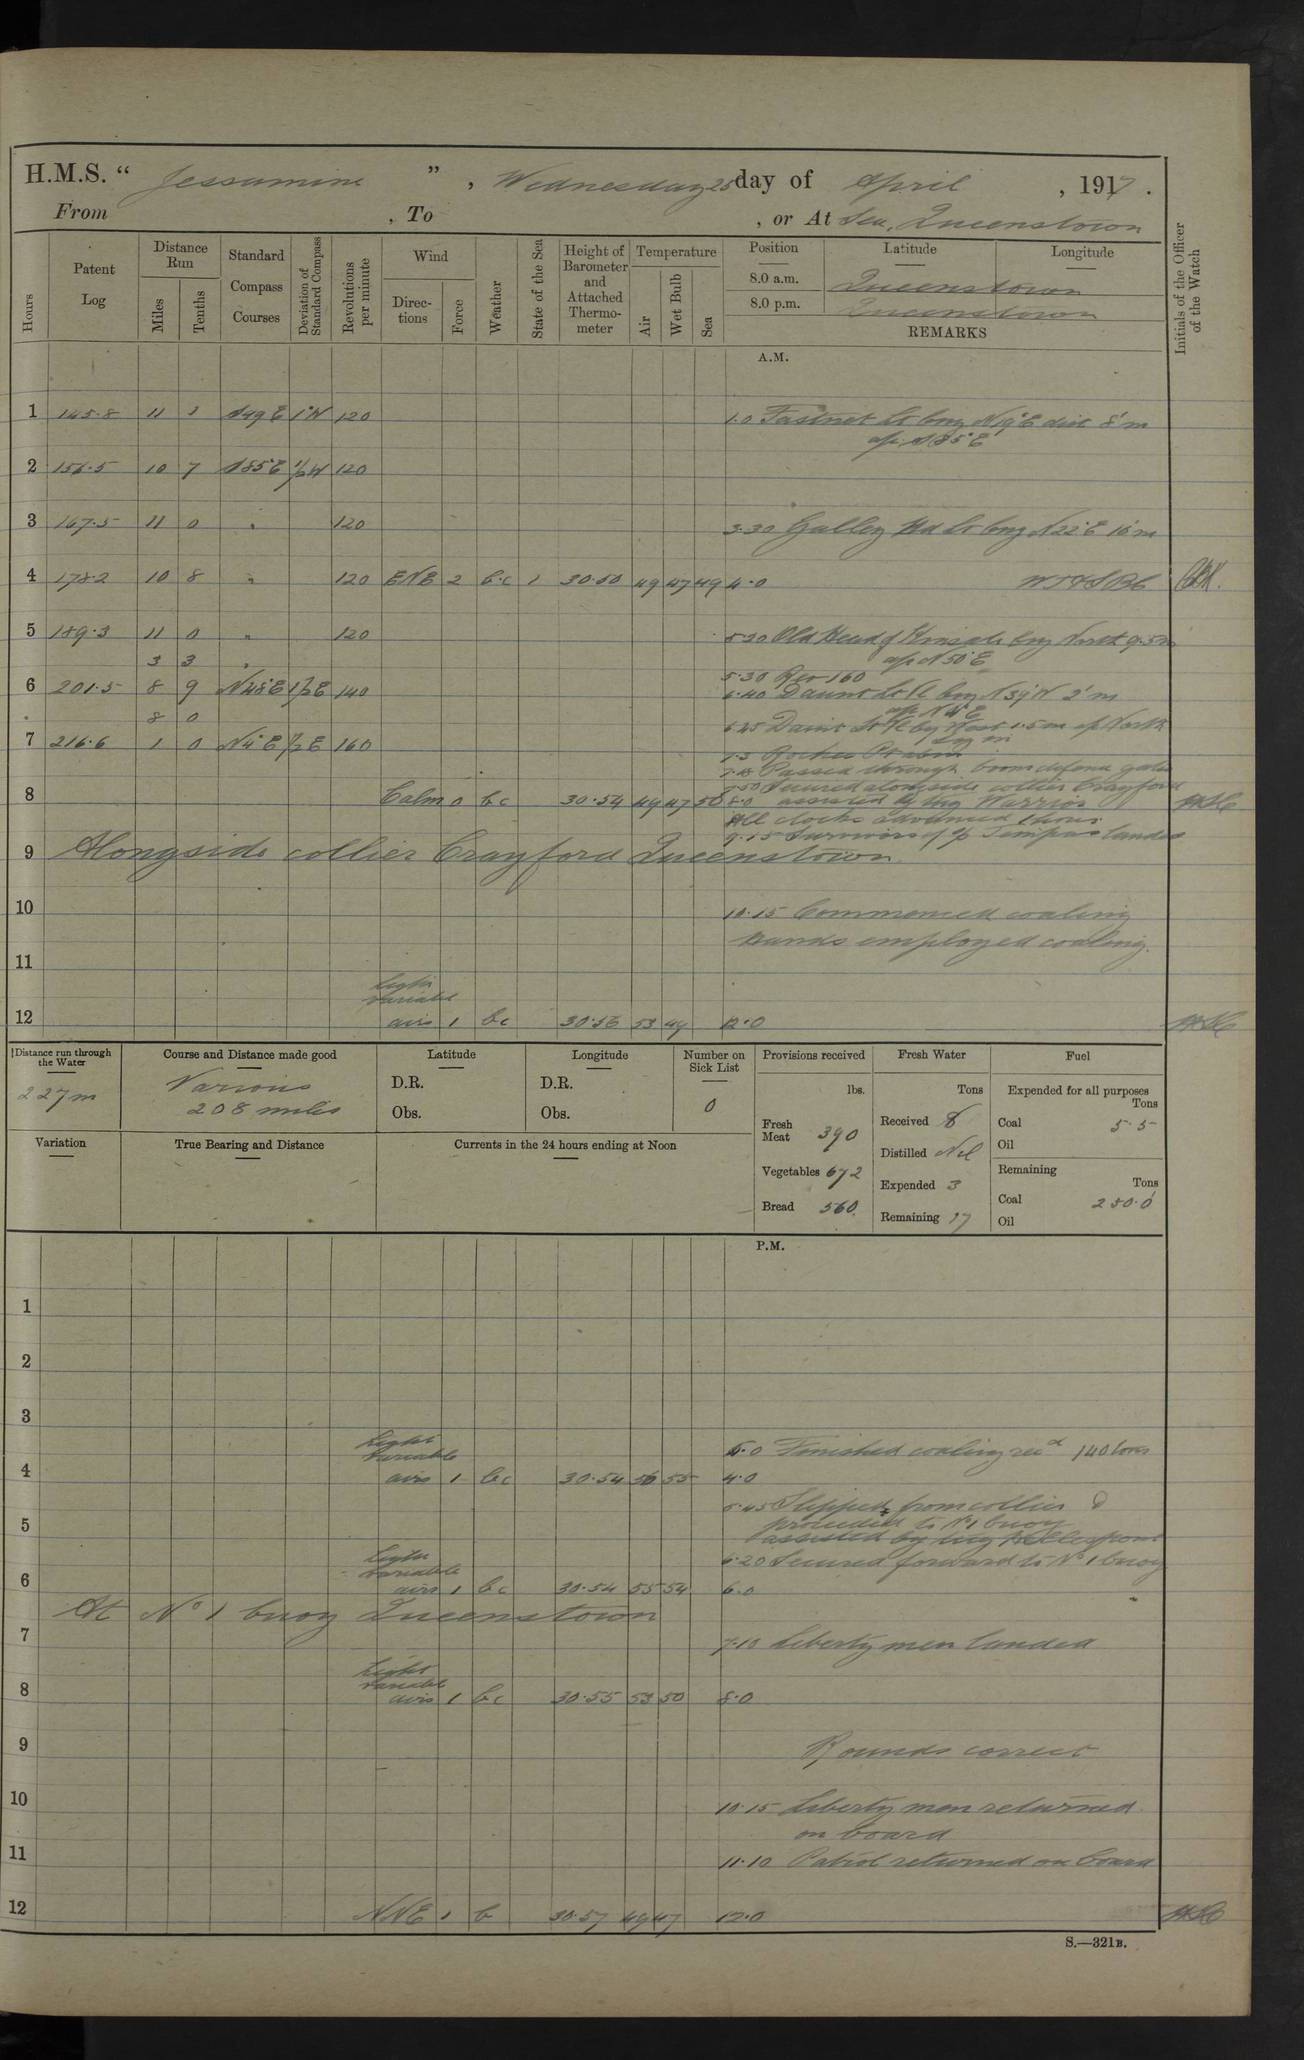 H.M.S. “ Jessamine ” , Wednesday 25 day of April , 1917 .
From , To , or At Sea, Queenstown
Hours
Patent Log
Distance Run
Miles
Tenths
Standard Compass Courses
Deviation of Standard Compass
Revolutions per minute
Wind
Directions
Force
Weather
State of the Sea
Height of Barometer and Attached Thermometer
Temperature
Air
Wet Bulb
Sea
Position
Latitude
Longitude
8.0 a.m. Queenstown
8.0 p.m. Queenstown
REMARKS
Initials of the Officer of the Watch
A.M.
1 145.8 11 S49°E 1°W 120 1.0 Fastnet Lt brng N19°E dist 8'm
a/c S85°E
2 156.5 10 7 S85°E ½W 120
3 167.5 11 0 " 120 3.30 Galley Hd Lt brng N22°E 16'm
4 178.2 10 8 " 120 ENE 2 b.c 1 30.50 49 47 49 4.0
5 189.3 11 0 " 120 5.20 Old Head of Kinsale brng North 9.5m
3 3 " a/c N50°E
5.30 Rev 160
6 201.5 8 9 N48°E ½E 140 6.40 Daunt Lt V brng N39°W 2'm
8 0 a/c N4°E
6.45 Daunt Lt V brg West 1.5m a/c North
7 216.6 1 0 N4°E ½E 160
7.5 Roches Pt abm
7.15 Passed through boom defence gate
7.50 Secured alongside collier Crayford
8 Calm 0 bc 30.54 49 47 50 8.0 assisted by tug Warrior
All clocks advanced 1 hour
9.15 Survivors of landed
9 Alongside collier Crayford Queenstown.
10 10.15 Commenced coaling
Hands employed coaling.
11
light
variable
12 airs 1 bc 30.56 53 49 12.0
Distance run through the Water
227m
Course and Distance made good
Various
208 miles
Latitude
D.R.
Obs.
Longitude
D.R.
Obs.
Number on Sick List
0
Provisions received
lbs.
Fresh Meat 390
Vegetables 672
Bread 560
Fresh Water
Tons
Received 8
Distilled Nil
Expended 3
Remaining 17
Fuel
Expended for all purposes
Tons
Coal 5.5
Oil
Remaining
Tons
Coal 250.0
Oil
Variation
True Bearing and Distance
Currents in the 24 hours ending at Noon
P.M.
1
2
3
light
variable
4.0 Finished coaling recd 140 tons
4 airs 1 bc 30.54 56 55 4.0
5.45 Slipped from collier &
5 proceeded to No 1 buoy
assisted by tug Hellespont
light
variable
6.20 Secured forward to No 1 buoy
6 airs 1 bc 30.54 55 54 6.0
At No 1 buoy Queenstown
7 7.10 Liberty men landed
light
variable
8 airs 1 bc 30.55 53 50 8.0
9 Rounds correct
10 10.15 Liberty men returned
on board
11 11.10 Patrol returned on board
12 NNE 1 b 30.57 49 47 12.0
S.—321B.